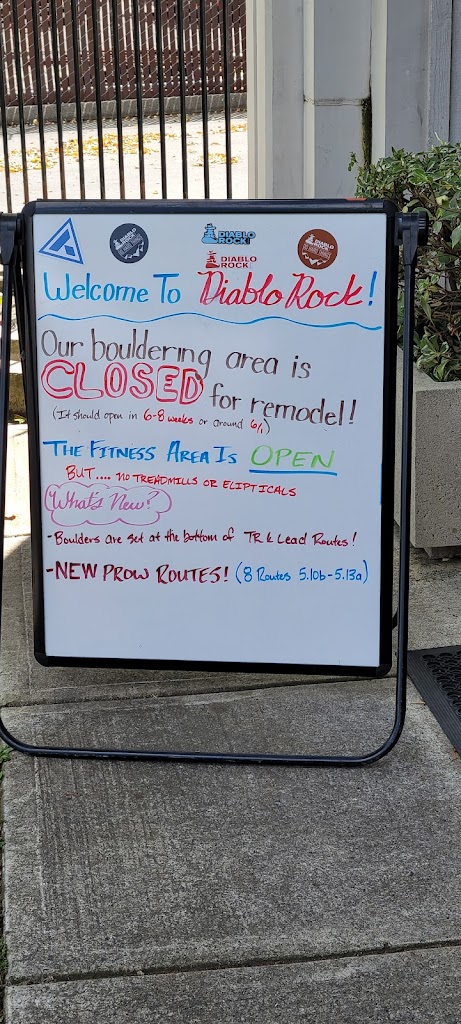 DIABLO
ROCK
DIABLO
ROCK
Welcome To Diablo Rock!
Our bouldering area is
CLOSED for remodel!
(It should open in 6-8 weeks or around 6/1)
THE FITNESS AREA IS OPEN
BUT.... NO TREADMILLS OR ELIPTICALS
What's New?
-Boulders are set at the bottom of TR & Lead Routes!
-NEW PROW ROUTES! (8 Routes 5.10b-5.13a)